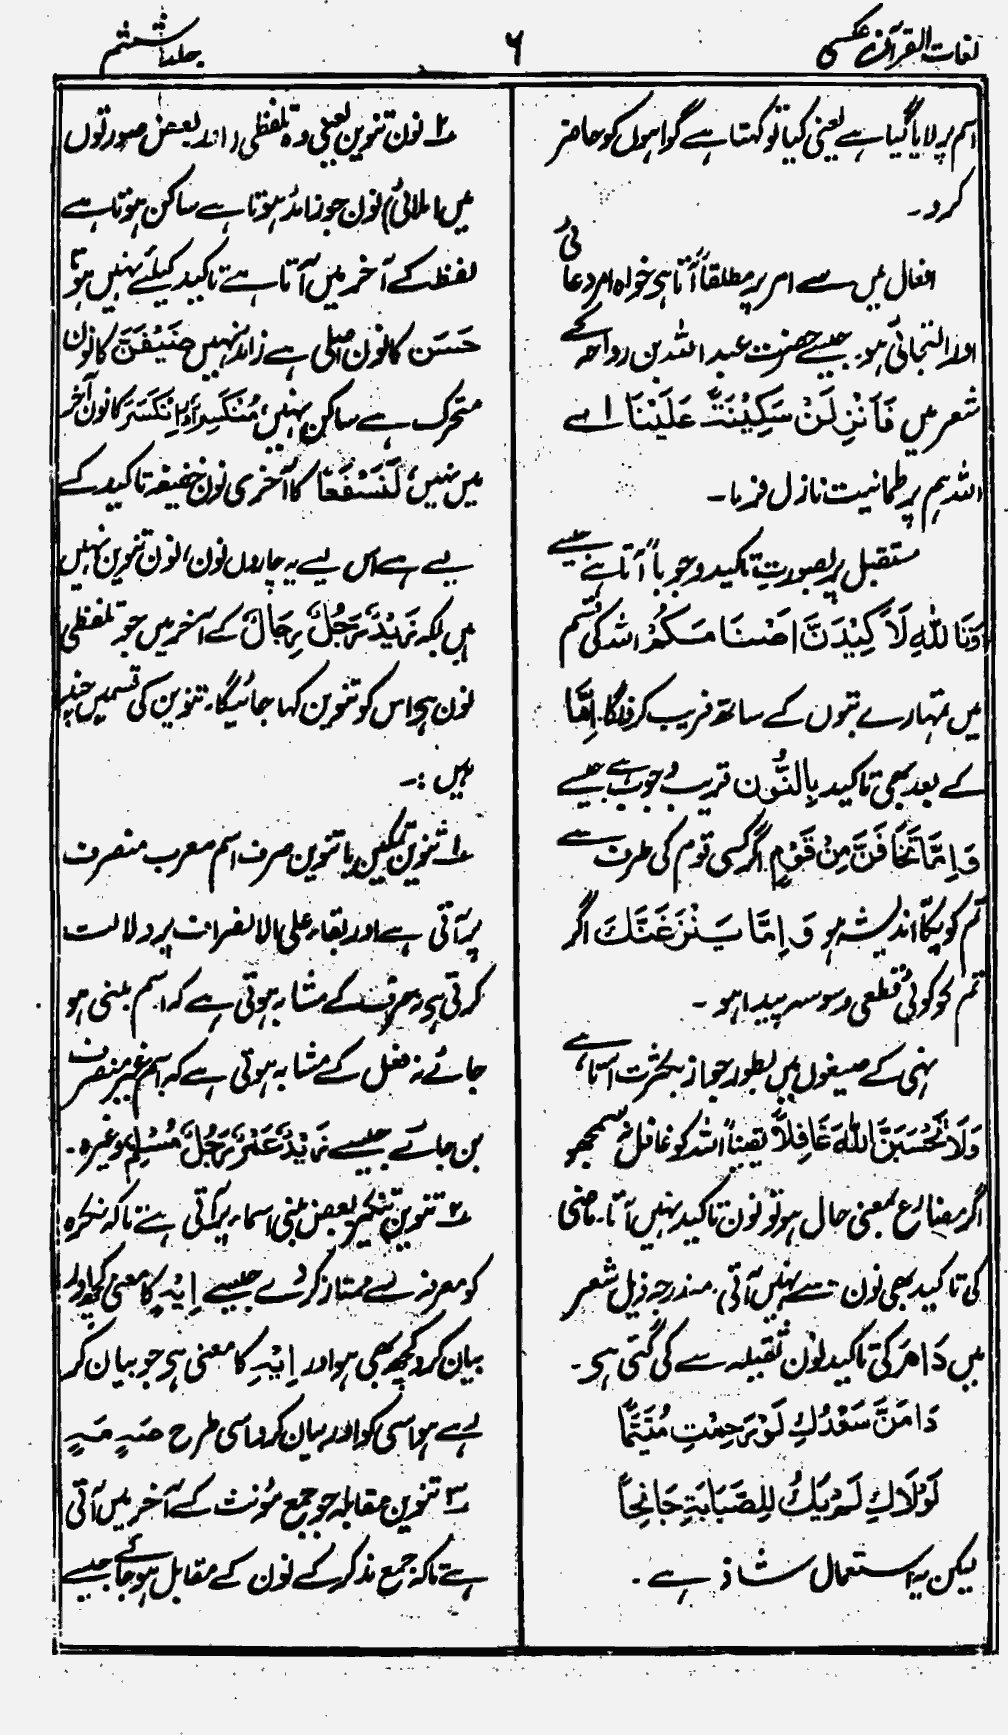 لغات القرآن عکسی
۶
جلد ششم
اسم پر لایا گیا ہے یعنی کیا تو کہتا ہے گواہوں کو حاضر
کرد۔
افعال میں سے امر پر مطلقاً آتا ہی خواہ امر دعائی
اور التجائی ہو۔ جیسے حضرت عبد اللہ بن رواحہ کے
شعر میں فَاَنْزِلَنْ سَکِیْنَۃً عَلَیْنَا اے
اللہ ہم پر طمانیت نازل فرما۔
مستقبل پر بصورتِ تاکید وجوباً آتا ہے جیسے
وَتَاللّٰہِ لَاَکِیْدَنَّ اَصْنَامَکُمْ اللہ کی قسم
میں تمہارے بتوں کے ساتھ فریب کرونگا۔ اِمَّا
کے بعد بھی تاکید بِالنُّون قریب وجوب ہے جیسے
وَاِمَّا تَخَافَنَّ مِنْ قَوْمٍ اگر کسی قوم کی طرف سے
تم کو پکا اندیشہ ہو وَ اِمَّا یَنْزَغَنَّکَ اگر
تم کو کوئی قطعی وسوسہ پیدا ہو۔
نہی کے صیغوں میں بطور جواز بکثرت آتا ہے
وَلَا تَحْسَبَنَّ اللّٰہَ غَافِلاً یقیناً اللہ کو غافل نہ سمجھو
اگر مضارع بمعنی حال ہو تو نون تاکید نہیں آتا۔ ماضی
کی تاکید بھی نون سے نہیں آتی۔ مندرجہ ذیل شعر
میں دَامَ کی تاکید نون ثقیلہ سے کی گئی ہی۔
دَامَنَّ سَعْدُكِ لَوْ رَحِمْتِ مُتَیَّمًا
لَوْلَاكِ لَمْ يَكُ لِلصَّبَابَةِ جَانِحًا
لیکن یہ استعمال شاذ ہے۔
۴ نون تنوین یعنی وہ تلفظی (اور بعض صورتوں
میں املائی) نون جو زائد ہوتا ہے ساکن ہوتا ہے
لفظ کے آخر میں آتا ہے تاکید کیلئے نہیں ہوتا
حَسَن کا نون اصلی ہے زائد نہیں ضَیْفَنَ کا نون
متحرک ہے ساکن نہیں، مُنْکَسِر اَور اِنْکَسَرَ کا نون آخر
میں نہیں، لَنَسْفَعًا کا آخری نون خفیفہ تاکید کے
لیے ہے اس لیے یہ چاروں نون، نون تنوین نہیں
ہیں بلکہ زَیْدٌ، رَجُلٌ، رِجَالٌ کے آخر میں جو تلفظی
نون ہے اس کو تنوین کہا جائیگا۔ تنوین کی قسمیں چند
ہیں:۔
۱ تنوین تمکین یا تنوین صرف اسم معرب منصرف
پر آتی ہے اور بقاء علی الانصراف پر دلالت
کرتی ہی نہ حرف کے مشابہ ہوتی ہے کہ اسم مبنی ہو
جائے نہ فعل کے مشابہ ہوتی ہے کہ اسم غیر منصرف
بن جائے جیسے زَیْدٌ، عَمْرٌ، رَجُلٌ، مُسْلِمٌ وغیرہ۔
۲ تنوین تنکیر بعض مبنی اسماء پر آتی ہے تاکہ نکرہ
کو معرفہ سے ممتاز کر دے جیسے اِیْہٍ کا معنی کچھ اور
بیان کرو کچھ بھی ہو اور اِیْہِ کا معنی ہی جو بیان کر
رہے ہو اسی کو اور بیان کرو اسی طرح صَہٍ مَہٍ
۳ تنوین مقابلہ جو جمع مؤنث کے آخر میں آتی
ہے تاکہ جمع مذکر کے نون کے مقابل ہو جائے جیسے